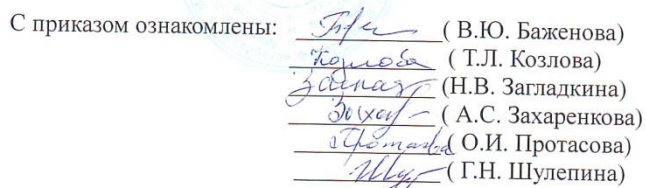 С приказом ознакомлены: ( В.Ю. Баженова)
Козлова ( Т.Л. Козлова)
(Н.В. Загладкина)
( А.С. Захаренкова)
( О.И. Протасова)
( Г.Н. Шулепина)